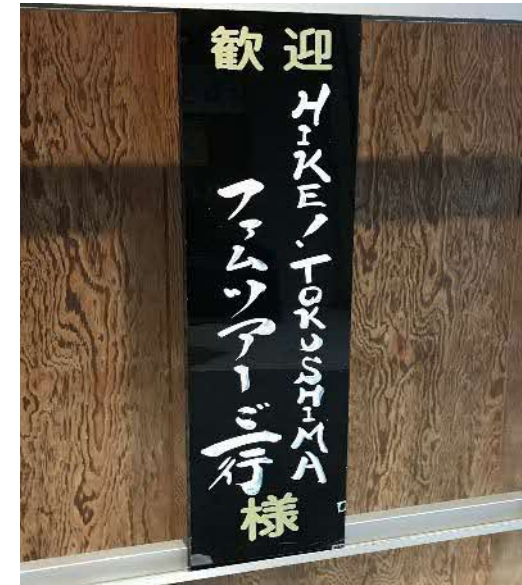 歓迎
HIKE！TOKUSHIMA
ファムツアーご一行
様